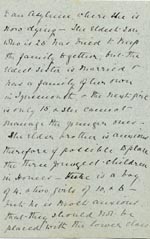 an Asylum where she is
now dying - The eldest son
who is 20 has tried to keep
the family together, but the
eldest sister is married &
has a family of her own
in &
the next girl
only 15 & she cannot
manage the younger ones -
The elder brother is anxious
therefore if possible to place
the three youngest children
in Homes - there is a boy
of 4 & two girls of 10 & 6 -
but he is most anxious
that they should not be
placed with the lower class